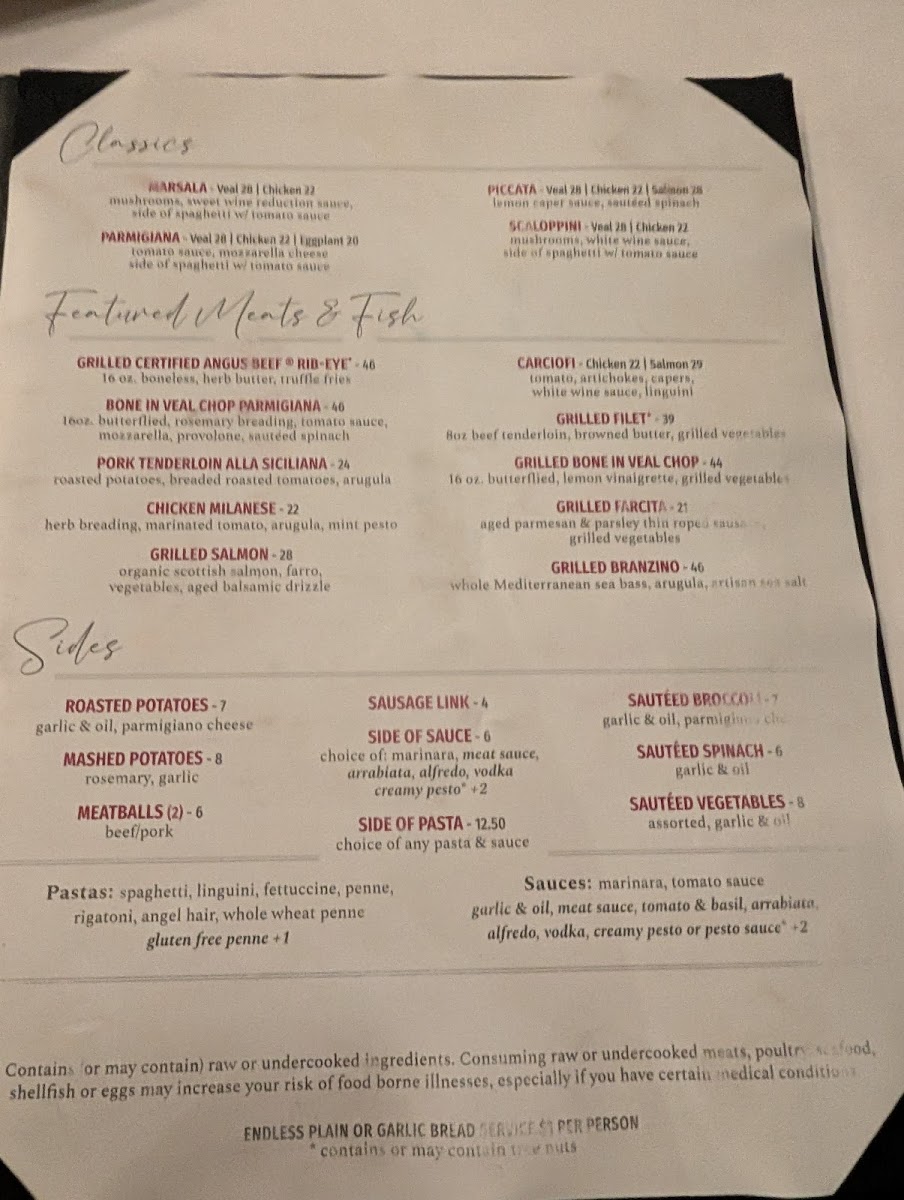 Classics
MARSALA - Veal 28 | Chicken 22
mushrooms, sweet wine reduction sauce,
side of spaghetti w/ tomato sauce
PARMIGIANA - Veal 28 | Chicken 22 | Eggplant 20
tomato sauce, mozzarella cheese
side of spaghetti w/ tomato sauce
PICCATA - Veal 28 | Chicken 22 | Salmon 28
lemon caper sauce, sautéed spinach
SCALOPPINI - Veal 28 | Chicken 22
mushrooms, white wine sauce,
side of spaghetti w/ tomato sauce
Featured Meats & Fish
GRILLED CERTIFIED ANGUS BEEF ® RIB-EYE* - 46
16 oz. boneless, herb butter, truffle fries
BONE IN VEAL CHOP PARMIGIANA - 46
16oz. butterflied, rosemary breading, tomato sauce,
mozzarella, provolone, sautéed spinach
PORK TENDERLOIN ALLA SICILIANA - 24
roasted potatoes, breaded roasted tomatoes, arugula
CHICKEN MILANESE - 22
herb breading, marinated tomato, arugula, mint pesto
GRILLED SALMON - 28
organic scottish salmon, farro,
vegetables, aged balsamic drizzle
CARCIOFI - Chicken 22 | Salmon 29
tomato, artichokes, capers,
white wine sauce, linguini
GRILLED FILET* - 39
8oz beef tenderloin, browned butter, grilled vegetables
GRILLED BONE IN VEAL CHOP - 44
16 oz. butterflied, lemon vinaigrette, grilled vegetables
GRILLED FARCITA - 21
aged parmesan & parsley thin roped
grilled vegetables
GRILLED BRANZINO - 46
whole Mediterranean sea bass, arugula, artisan sea salt
Sides
ROASTED POTATOES - 7
garlic & oil, parmigiano cheese
MASHED POTATOES - 8
rosemary, garlic
MEATBALLS (2) - 6
beef/pork
SAUSAGE LINK - 4
SIDE OF SAUCE - 6
choice of: marinara, meat sauce,
arrabiata, alfredo, vodka
creamy pesto* +2
SIDE OF PASTA - 12.50
choice of any pasta & sauce
SAUTÉED BROCCOLI - 7
garlic & oil,
SAUTÉED SPINACH - 6
garlic & oil
SAUTÉED VEGETABLES - 8
assorted, garlic & oil
Pastas: spaghetti, linguini, fettuccine, penne,
rigatoni, angel hair, whole wheat penne
gluten free penne +1
Sauces: marinara, tomato sauce
garlic & oil, meat sauce, tomato & basil, arrabiata,
alfredo, vodka, creamy pesto or pesto sauce* +2
Contains (or may contain) raw or undercooked ingredients. Consuming raw or undercooked meats, poultry, seafood,
shellfish or eggs may increase your risk of food borne illnesses, especially if you have certain medical conditions
ENDLESS PLAIN OR GARLIC BREAD SERVICE $1 PER PERSON
* contains or may contain tree nuts